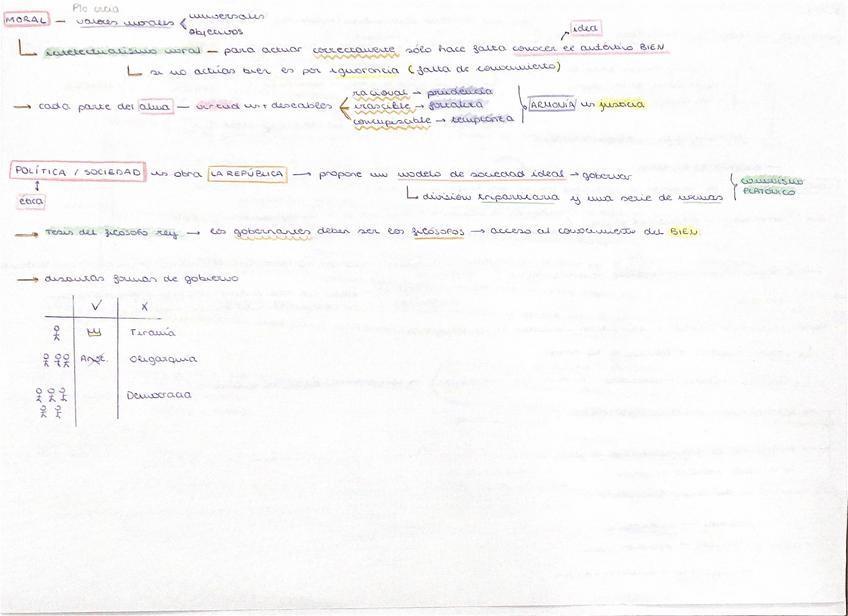 Plo creía
MORAL — valores morales < universales
objetivos
idea
intelectualismo moral — para actuar correctamente sólo hace falta conocer el auténtico BIEN
si no actúas bien es por ignorancia (falta de conocimiento)
→ cada parte del alma — virtud + deseables
racional → prudencia
irascible → fortaleza
concupiscible → templanza
ARMONÍA justicia
POLÍTICA / SOCIEDAD obra LA REPÚBLICA → propone un modelo de sociedad ideal → gobernar
ética
división tripartita y una serie de normas
COMUNISMO
PLATÓNICO
→ Tesis del filósofo rey → los gobernantes deben ser los filósofos → acceso al conocimiento del BIEN
→ distintas formas de gobierno
V X
Tiranía
Oligarquía
Democracia